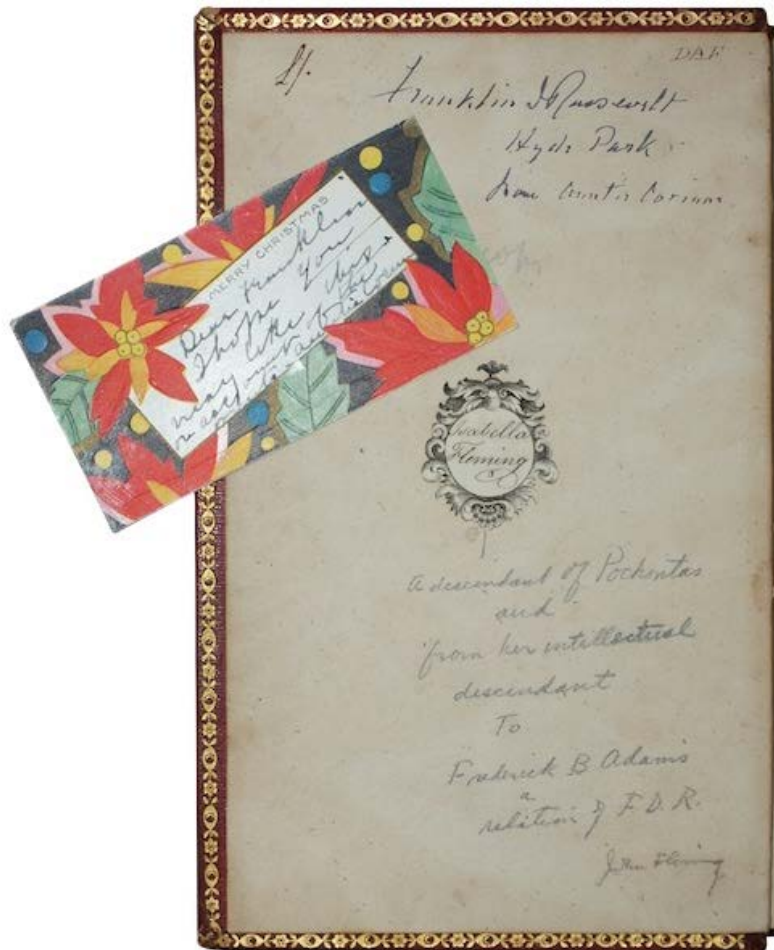 Lf.
Franklin D Roosevelt
Hyde Park
from
MERRY CHRISTMAS
Dear Franklin
I hope you
may like this
account of the
Isabella
Fleming
A descendant of Pochontas
and
from her intellectual
descendant
To
Frederick B Adams
a
relation of F.D.R.
John Fleming